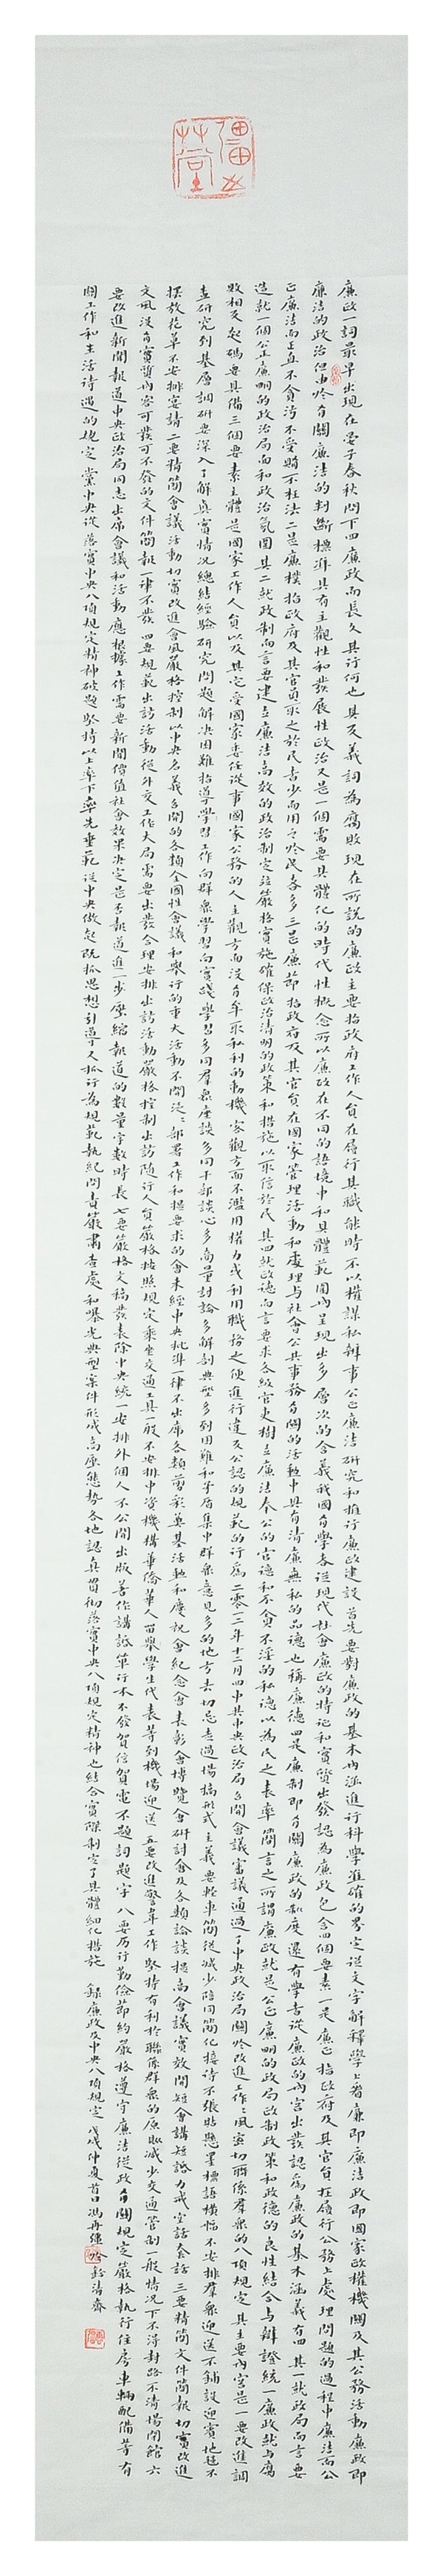 廉政一詞最早出現在晏子春秋問下四廉政而長久其行何也其反義詞為腐敗現在所說的廉政主要指政府工作人員在履行其職能時不以權謀私辦事公正廉潔研究和推行廉政建設首先要對廉政的基本內涵進行科學準確的界定從文字解釋學上看廉即廉潔政即國家政權機關及其公務活動廉政即
廉潔的政治但由於有關廉潔的判斷標準具有主觀性和發展性政治又是一個需要具體化的時代性概念所以廉政在不同的語境中和具體範圍內呈現出多層次的含義我國有學者從現代社會廉政的特征和實質出發認為廉政包含四個要素一是廉正指政府及其官員在履行公務上處理問題的過程中廉潔而公
正廉潔而正直不貪污不受賄不枉法二是廉樸指政府及其官員取之於民者少而用之於民者多三是廉節指政府及其官員在國家管理活動和處理与社會公共事務有關的活動中具有清廉無私的品德也稱廉德四是廉制即有關廉政的制度還有學者從廉政的內容出發認為廉政的基本涵義有四其一就政局而言要
造就一個公正廉明的政治局面和政治氛圍其二就政制而言要建立廉潔高效的政治制定並嚴格實施確保政治清明的政策和措施以取信於民其四就政德而言要求各級官吏樹立廉潔奉公的官德和不貪不淫的私德以為民之表率簡言之所謂廉政就是公正廉明的政局政制政策和政德的良性結合与辯證統一廉政就与腐
敗相反起碼要具備三個要素主體是國家工作人員以及其它受國家委任從事國家公務的人主觀方面沒有牟取私利的動機客觀方面不濫用權力或利用職務之便進行違反公認的規範的行為二零一二年十二月四中共中央政治局召開會議審議通過了中央政治局關於改進工作作風密切聯係群眾的八項規定其主要內容是一要改進調
查研究到基層調研要深入了解真實情況總結經驗研究問題解決困難指導學習工作向群眾學習向實踐學習多同群眾座談多同干部談心多商量討論多解剖典型多到困難和矛盾集中群眾意見多的地方去切忌走過場搞形式主義要輕車簡從減少陪同簡化接待不張貼懸掛標語橫幅不安排群眾迎送不鋪設迎賓地毯不
擺放花草不安排宴請二要精簡會議活動切實改進會風嚴格控制以中央名義召開的各類全國性會議和舉行的重大活動不開泛泛部署工作和提要求的會未經中央批準一律不出席各類剪彩奠基活動和慶祝會紀念會表彰會博覽會研討會及各類論談提高會議實效開短會講短話力戒空話套話三要精簡文件簡報切實改進
文風沒有實質內容可發可不發的文件簡報一律不發四要規範出訪活動從外交工作大局需要出發合理安排出訪活動嚴格控制出訪隨行人員嚴格按照規定乘坐交通工具一般不安排中資機構華僑華人留學生代表等到機場迎送五要改進警車工作堅持有利於聯係群眾的原則減少交通管制一般情況下不得封路不清場閉館六
要改進新聞報道中央政治局同志出席會議和活動應根據工作需要新聞價值社會效果決定是否報道進一步壓縮報道的數量字數時長七要嚴格文稿發表除中央統一安排外個人不公開出版著作講話單行本不發賀信賀電不題詞題字八要厉行勤儉節約嚴格遵守廉潔從政有關規定嚴格執行住房車輛配備等有
關工作和生活待遇的規定黨中央從落實中央八項規定精神破題堅持以上率下率先垂範從中央做起既抓思想引導又抓行為規範執紀問責嚴肅查處和曝光典型案件形成高壓態勢各地認真貫徹落實中央八項規定精神也結合實際制定了具體細化措施 錄廉政及中央八項規定戊戌仲夏吉日馮再